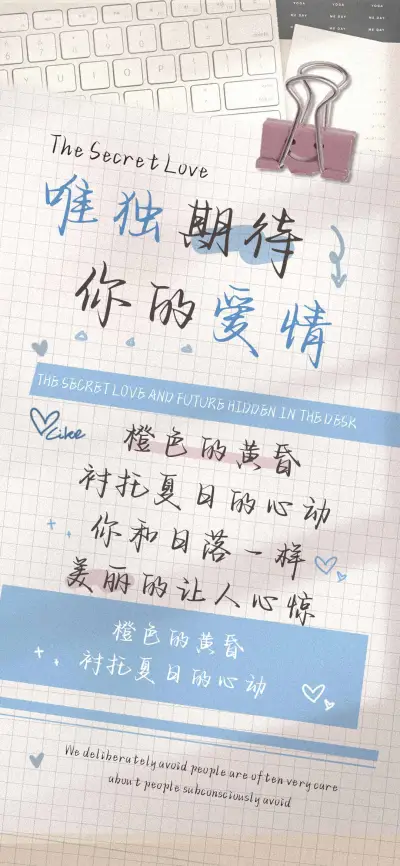 YOGA
YOGA
YOGA
ME DAY
ME DAY
ME DAY
Y
U
I
O
P
The Secret Love
唯独期待
你的爱情
THE SECRET LOVE AND FUTURE HIDDEN IN THE DESK
Like
橙色的黄昏
衬托夏日的心动
你和日落一样
美丽的让人心惊
橙色的黄昏
衬托夏日的心动
We deliberately avoid people are often very care
about people subconsciously avoid